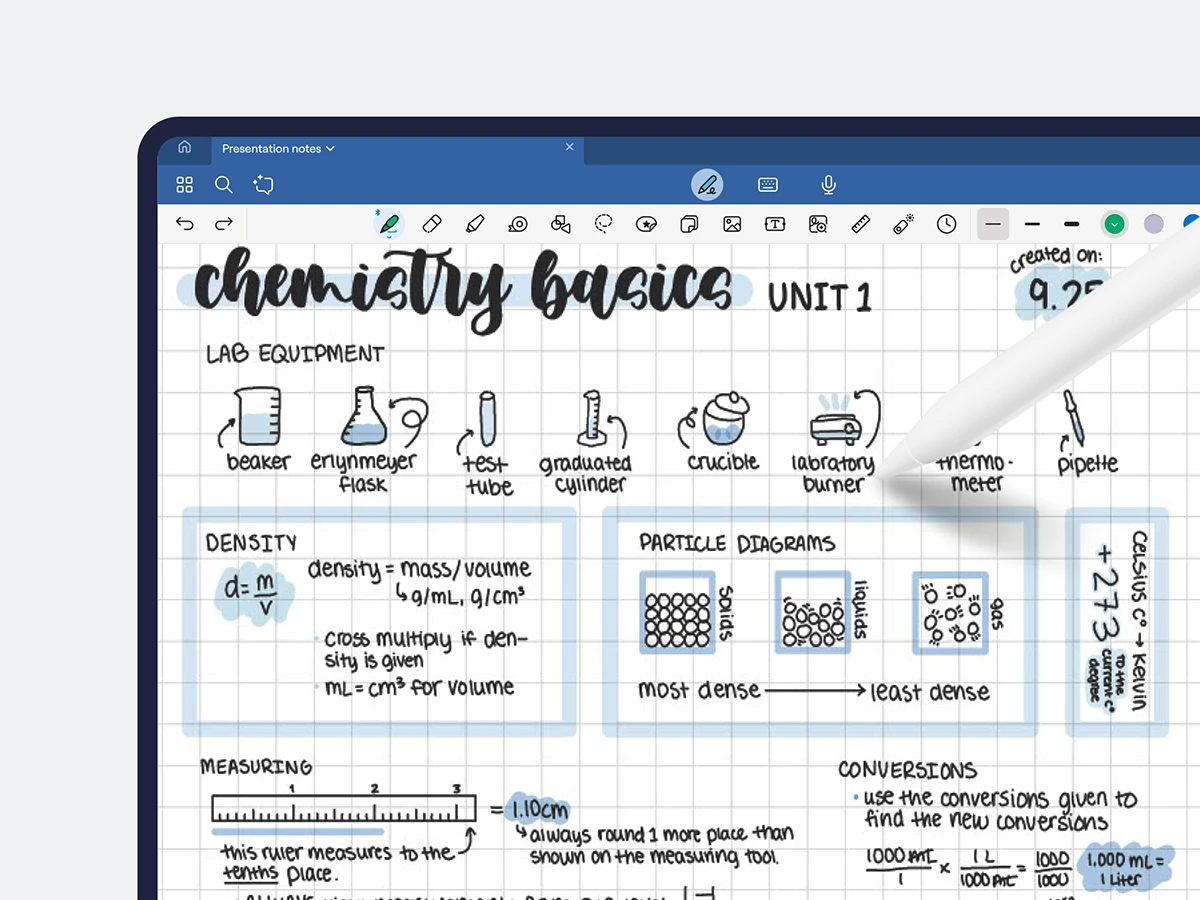 Presentation notes
chemistry basics UNIT 1
created on:
9.25
LAB EQUIPMENT
beaker
erlynmeyer
flask
test
tube
graduated
cylinder
crucible
labratory
burner
thermo-
meter
pipette
DENSITY
d = m/v
density = mass/volume
↳ g/mL, g/cm³
cross multiply if den-
sity is given
mL = cm³ for volume
PARTICLE DIAGRAMS
solids
liquids
gas
most dense → least dense
Celsius c° → Kelvin
+273
to the
current c°
degree
MEASURING
1 2 3
= 1.10cm
↳ always round 1 more place than
shown on the measuring tool.
this ruler measures to the
tenths place.
CONVERSIONS
• use the conversions given to
find the new conversions
1000 mL/1 × 1 L/1000 mL = 1000/1000
1,000 mL =
1 Liter